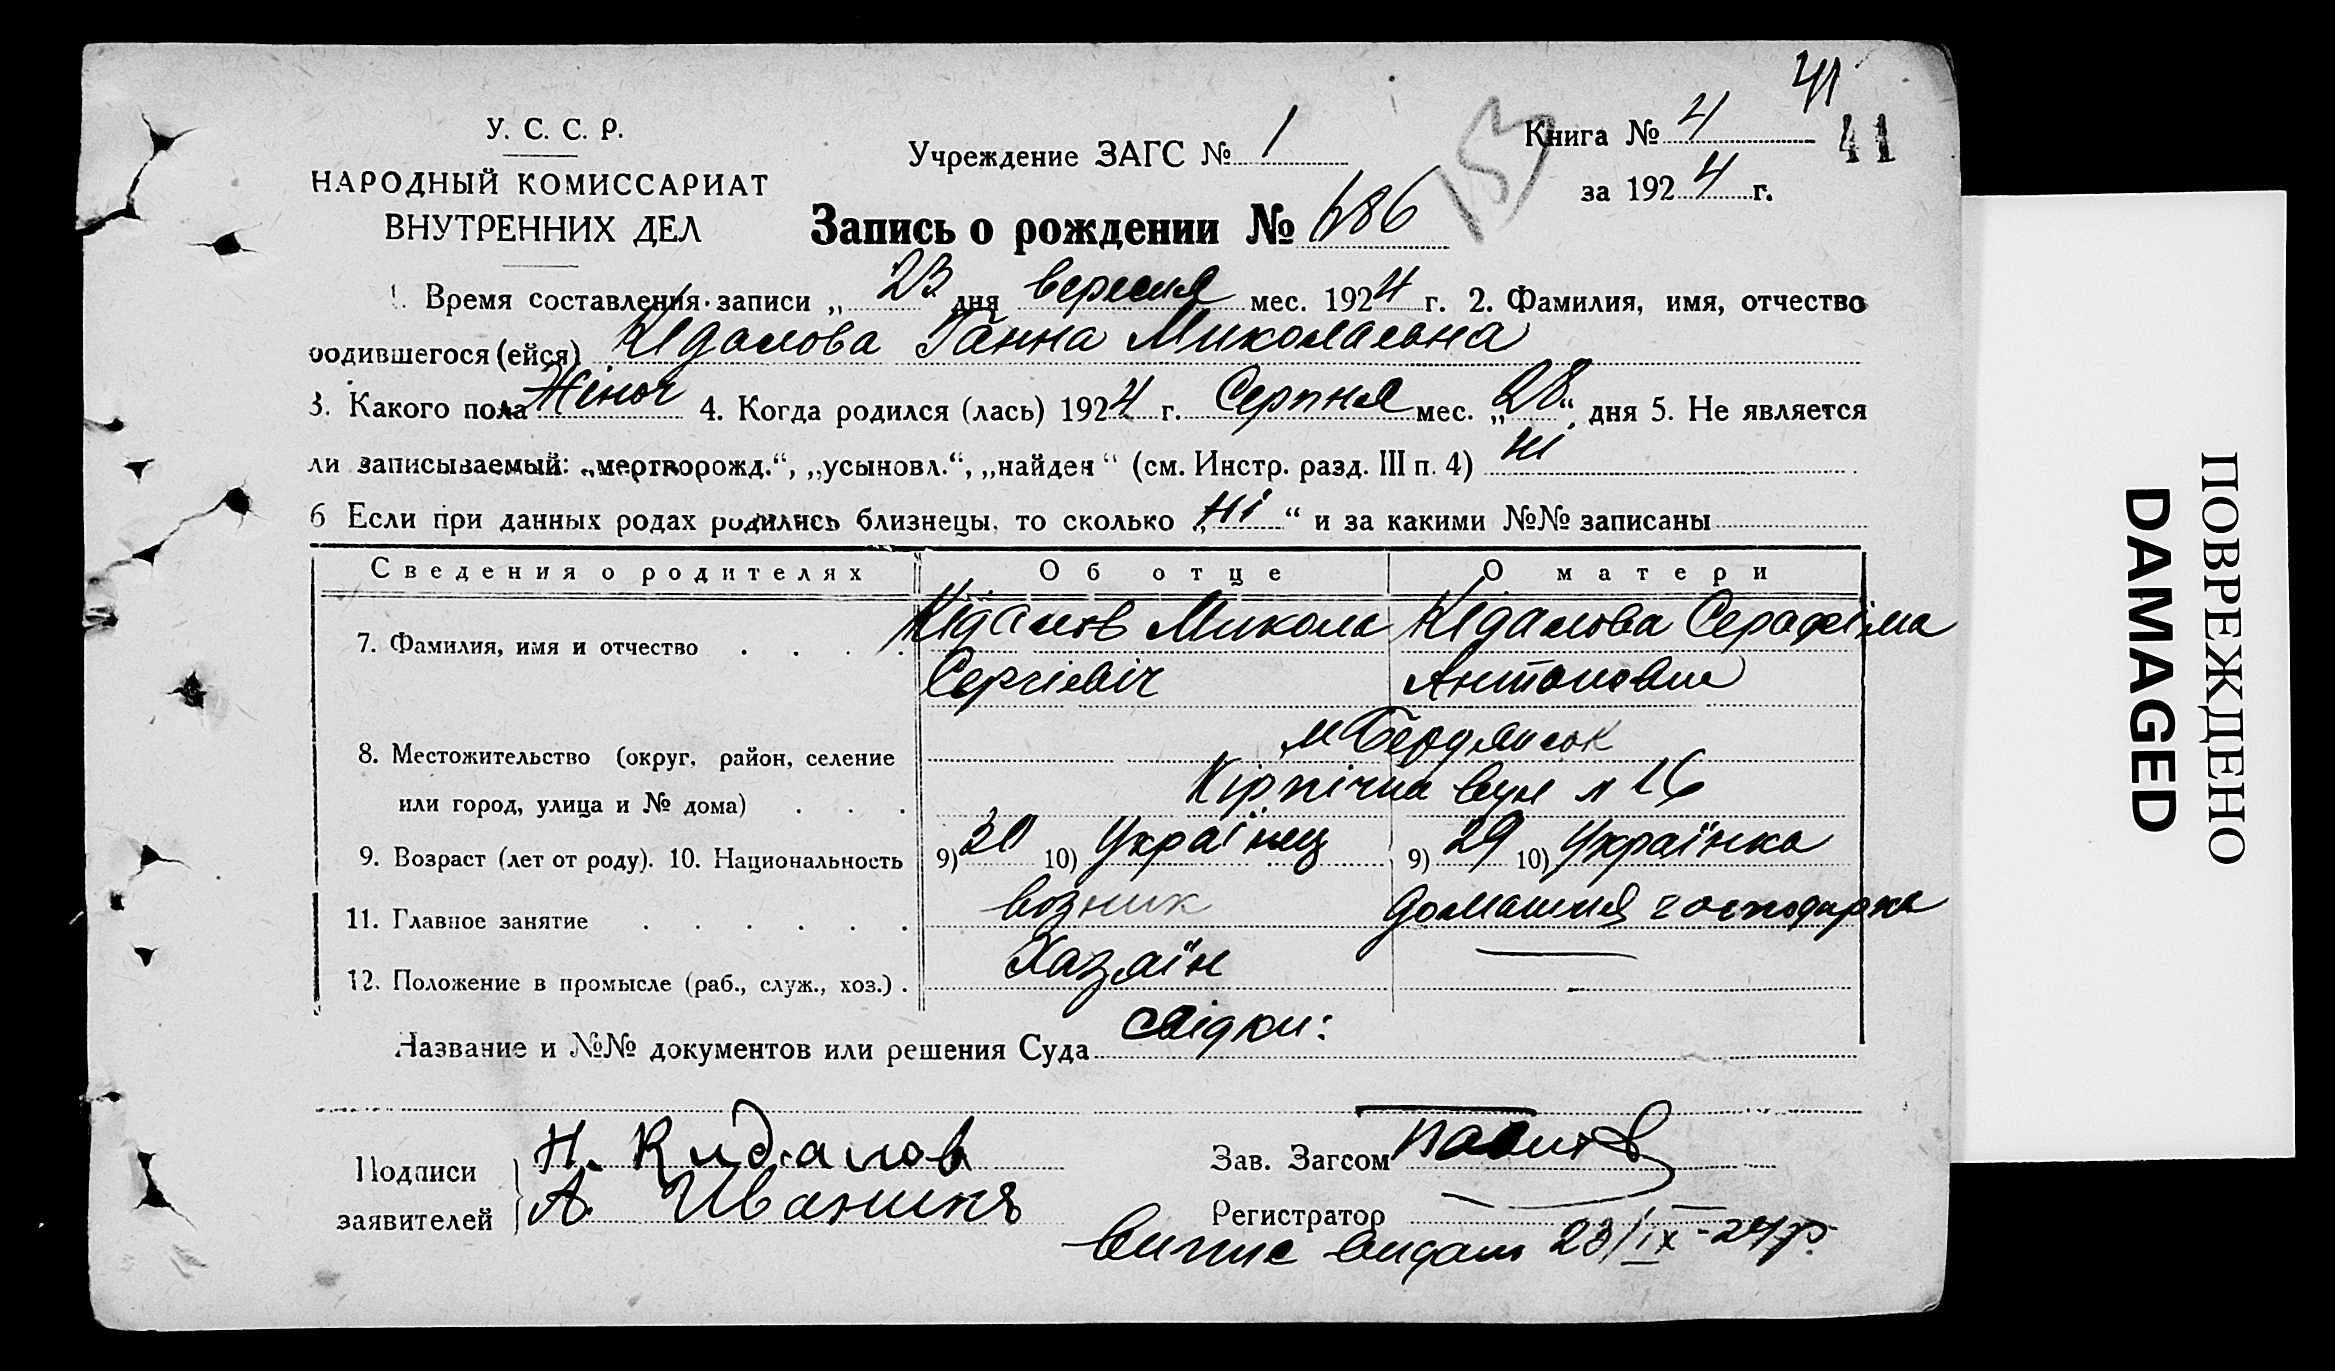 41
У. С. С. Р.
НАРОДНЫЙ КОМИССАРИАТ
ВНУТРЕННИХ ДЕЛ
Учреждение ЗАГС № 1
Книга № 4
41
за 1924 г.
Запись о рождении № 686
153
1. Время составления записи „ 23 дня вересня мес. 1924 г. 2. Фамилия, имя, отчество
родившегося (ейся) Кідалова Ганна Миколаевна
3. Какого пола Жіноч 4. Когда родился (лась) 1924 г. Серпня мес. „28“ дня 5. Не является
ли записываемый: „мертворожд.“, „усыновл.“, „найден“ (см. Инстр. разд. III п. 4) ні
6 Если при данных родах родились близнецы, то сколько „ні“ и за какими №№ записаны
Сведения о родителях Об отце О матери
7. Фамилия, имя и отчество Кідалов Микола Кідалова Серафіма
Сергіевіч Антоновна
8. Местожительство (округ, район, селение м Бердянськ
или город, улица и № дома) Кірпічна вул № 16
9. Возраст (лет от роду). 10. Национальность 9) 30 10) Українец 9) 29 10) Українка
11. Главное занятие возник домашня господарка
12. Положение в промысле (раб., служ., хоз.) Хазяїн
Название и №№ документов или решения Суда свідки:
Подписи заявителей
Н. Кидалов
А. Иваникъ
Зав. Загсом
Регистратор
Випис видан 23/IX-24 р.
ПОВРЕЖДЕНО
DAMAGED